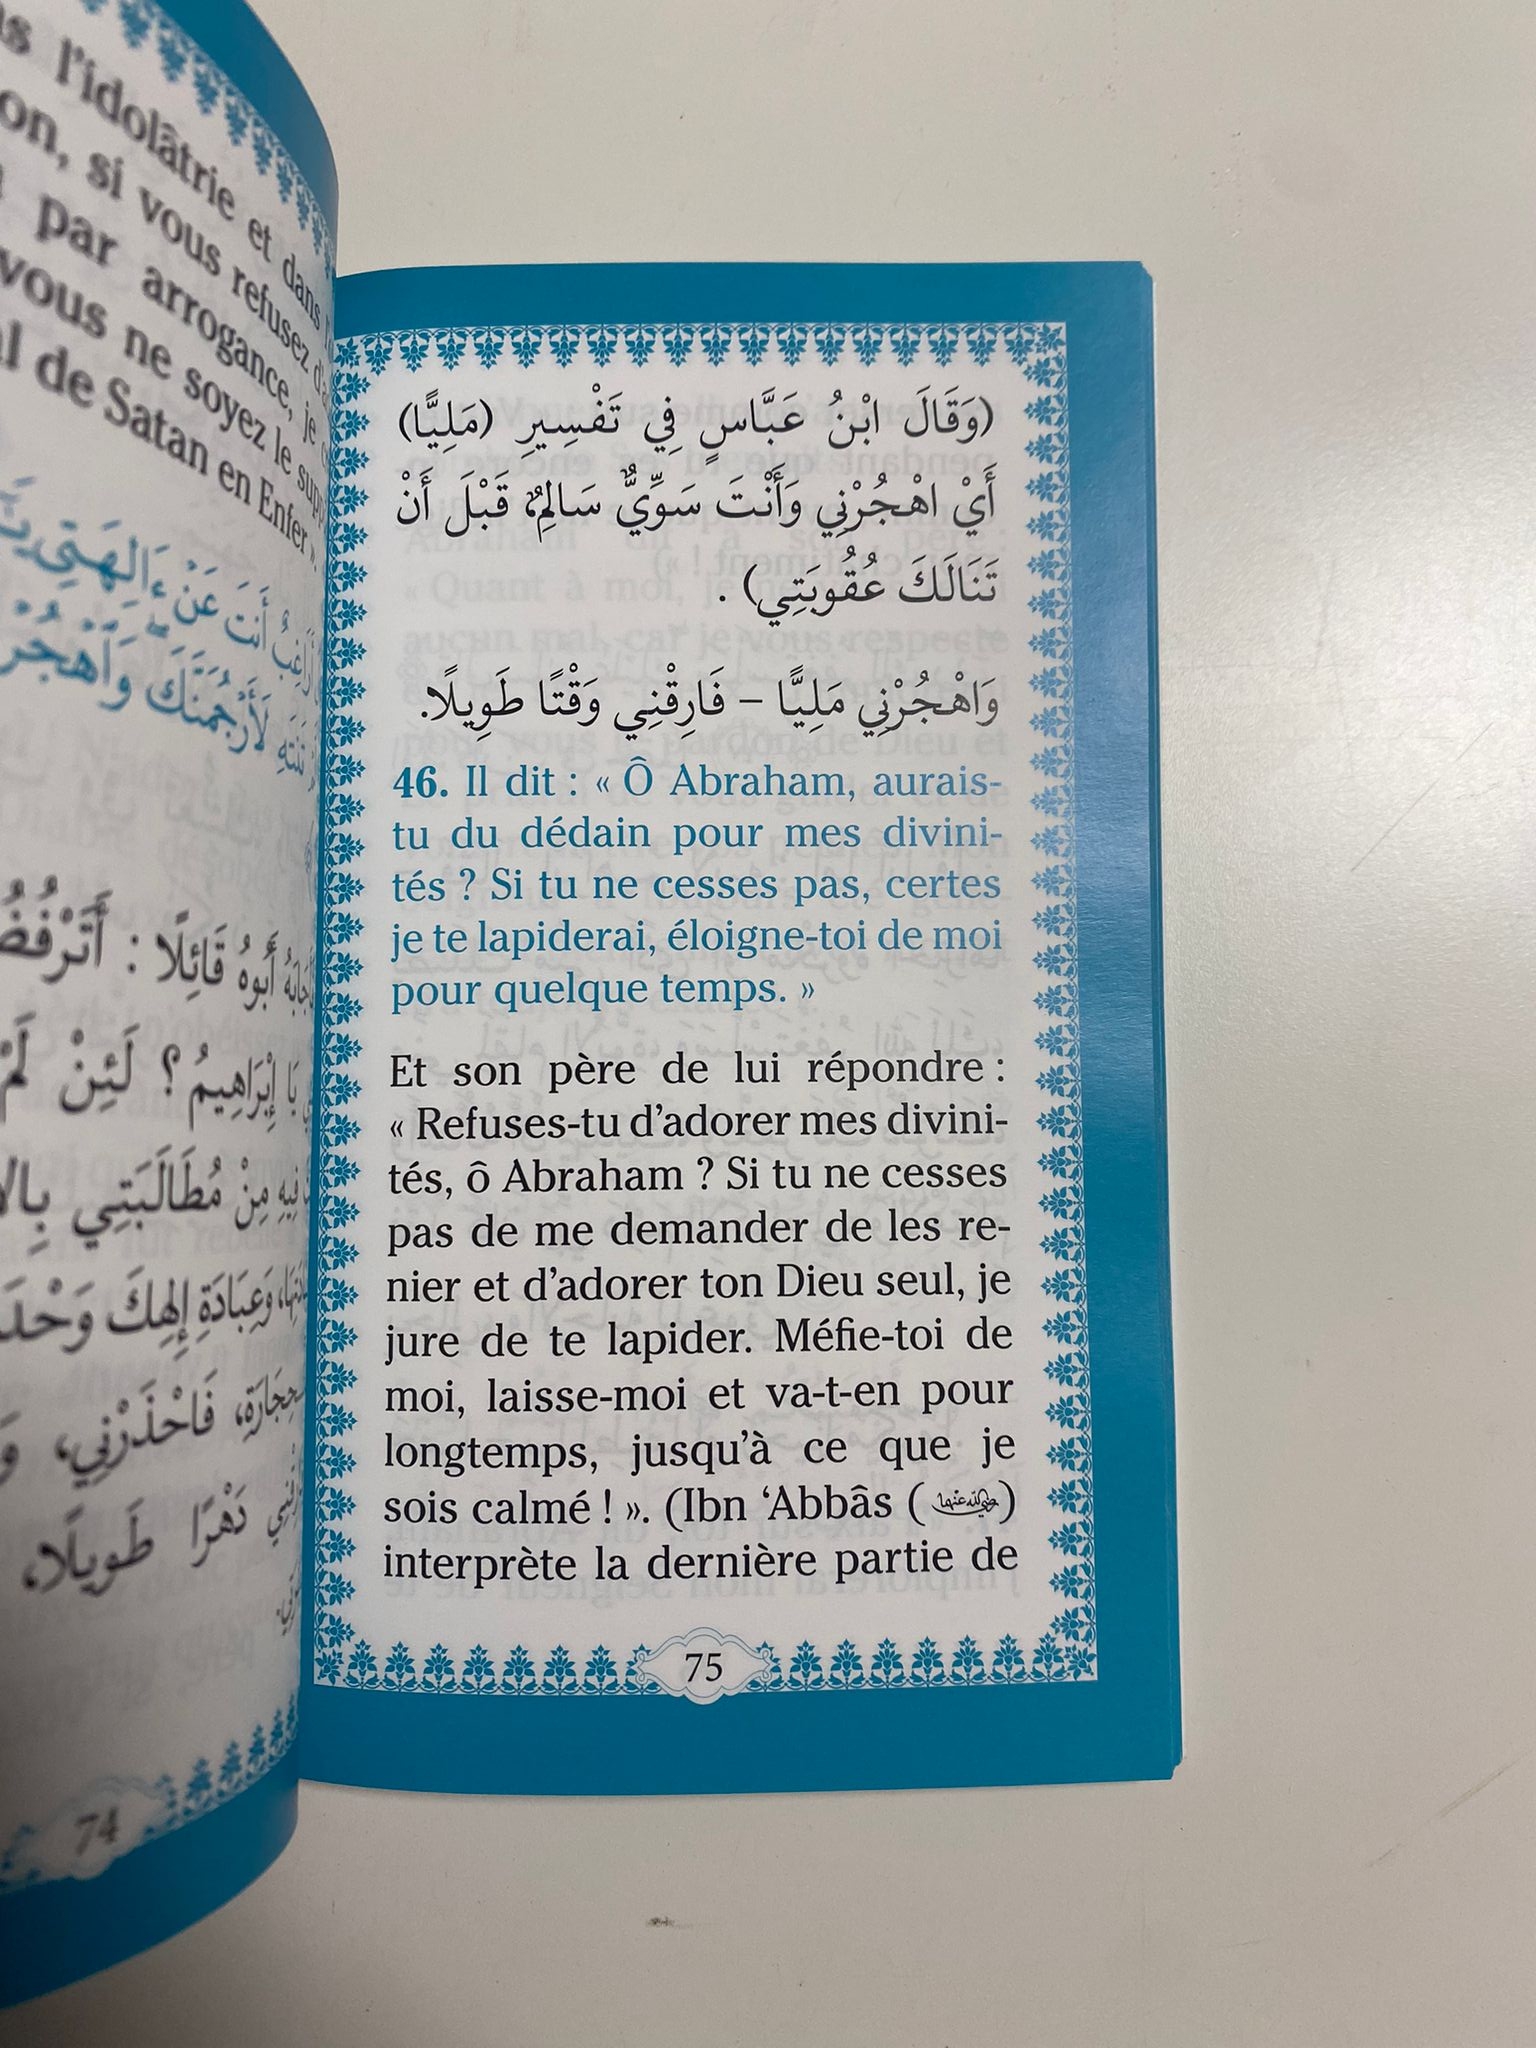 l'idolâtrie et dans
si vous refusez
par arrogance, je
vous ne soyez le
de Satan en Enfer ».
أَنتَ عَنْ ءَالِهَتِي
لَأَرْجُمَنَّكَ وَاهْجُرْ
أَبُوهُ قَائِلًا :
إِبْرَاهِيمُ ؟ لَئِنْ لَمْ
مِنْ مُطَالَبَتِي
وَعِبَادَةِ إِلٰهِكَ
فَاحْذَرْنِي،
دَهْرًا طَوِيلًا،
74
(وَقَالَ ابْنُ عَبَّاسٍ فِي تَفْسِيرِ (مَلِيًّا)
أَيْ اهْجُرْنِي وَأَنْتَ سَوِّيٌّ سَالِمٌ قَبْلَ أَنْ
تَنَالَكَ عُقُوبَتِي) .
وَاهْجُرْنِي مَلِيًّا – فَارِقْنِي وَقْتًا طَوِيلًا.
46. Il dit : « Ô Abraham, aurais-
tu du dédain pour mes divini-
tés ? Si tu ne cesses pas, certes
je te lapiderai, éloigne-toi de moi
pour quelque temps. »
Et son père de lui répondre :
« Refuses-tu d'adorer mes divini-
tés, ô Abraham ? Si tu ne cesses
pas de me demander de les re-
nier et d'adorer ton Dieu seul, je
jure de te lapider. Méfie-toi de
moi, laisse-moi et va-t-en pour
longtemps, jusqu'à ce que je
sois calmé ! ». (Ibn ‘Abbâs (رضي الله عنهما)
interprète la dernière partie de
75